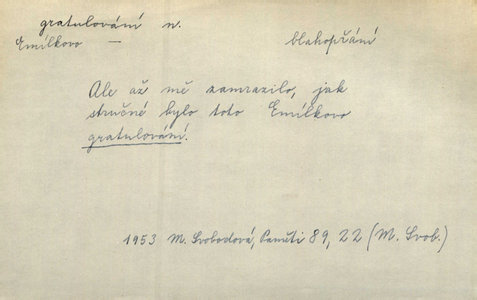 gratulování n.
Emílkovo — blahopřání
Ale až mě zamrazilo, jak
stručné bylo toto Emílkovo
gratulování.
1953 M. Svobodová, Paměti 89, 22 (M. Svob.)